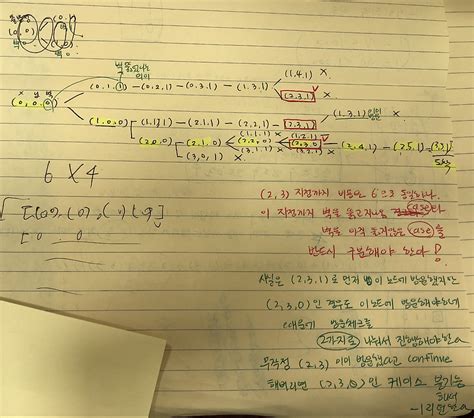 벽 뚫었다는 의미
x y 벽
(0,0,0) (0,1,1) - (0,2,1) - (0,3,1) - (1,3,1) (1,4,1) x
(2,3,1) ✓
(1,0,0) (1,1,1) - (2,1,1) - (2,2,1) - (2,3,1) (1,3,1) x
(2,0,0) (2,1,0) (1,1,1) x
(2,2,0) (1,2,1) x
(2,3,0) - (2,4,1) - (2,5,1) - (3,5,1) 도착
(3,1,1) x (3,2,1) x
(3,0,1) x
6 X 4
(2,3) 지점까지 비용은 6으로 동일하나,
이 지점까지 벽을 뚫고 지나온 case랑
벽을 아직 뚫지않은 case를
반드시 구분해야 한다!
사실은 (2,3,1)로 먼저 이 노드에 방문했지만
(2,3,0)인 경우도 이 노드에 방문해야하기
때문에 방문체크를
2가지로 나눠서 진행해야한다
무작정 (2,3) 이미 방문했다고 continue
해버리면 (2,3,0)인 케이스 불가능
해져
-1 리턴한다